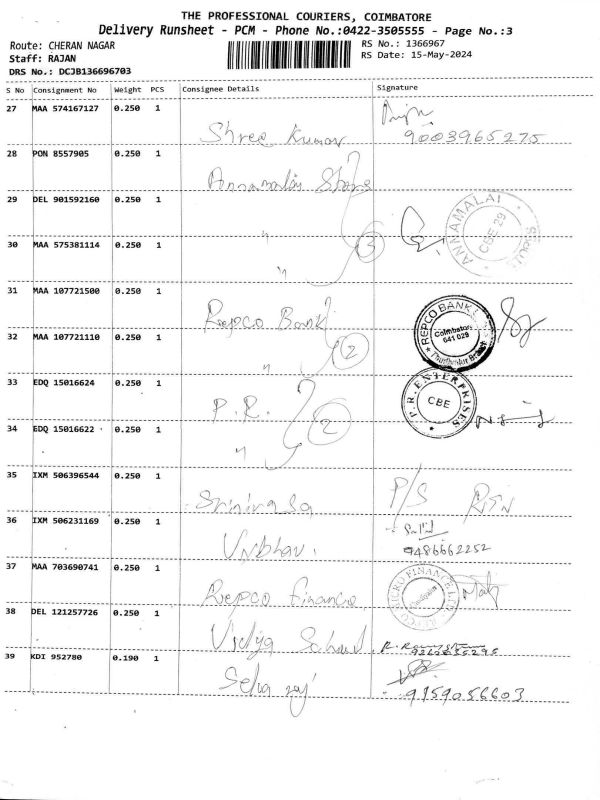 THE PROFESSIONAL COURIERS, COIMBATORE
Delivery Runsheet - PCM - Phone No.:0422-3505555 - Page No.:3
Route: CHERAN NAGAR RS No.: 1366967
Staff: RAJAN RS Date: 15-May-2024
DRS No.: DCJB136696703
S No Consignment No Weight PCS Consignee Details Signature
27 MAA 574167127 0.250 1
Shree Kumar 9003965275
28 PON 8557905 0.250 1
Annamalai Store
29 DEL 901592160 0.250 1
ANNAMALAI CBE 29
"
30 MAA 575381114 0.250 1 3
"
31 MAA 107721500 0.250 1
Repco Bank
REPCO BANK Coimbatore 641 029
32 MAA 107721110 0.250 1
" 2
33 EDQ 15016624 0.250 1
P.R.
P.R. ENTERPRISES CBE
34 EDQ 15016622 0.250 1 2
"
35 IXM 506396544 0.250 1
Srinivasa P/S
36 IXM 506231169 0.250 1
9486662252
37 MAA 703690741 0.250 1
Repco Finance
38 DEL 121257726 0.250 1
Vidya School
39 KDI 952780 0.190 1
9159056603